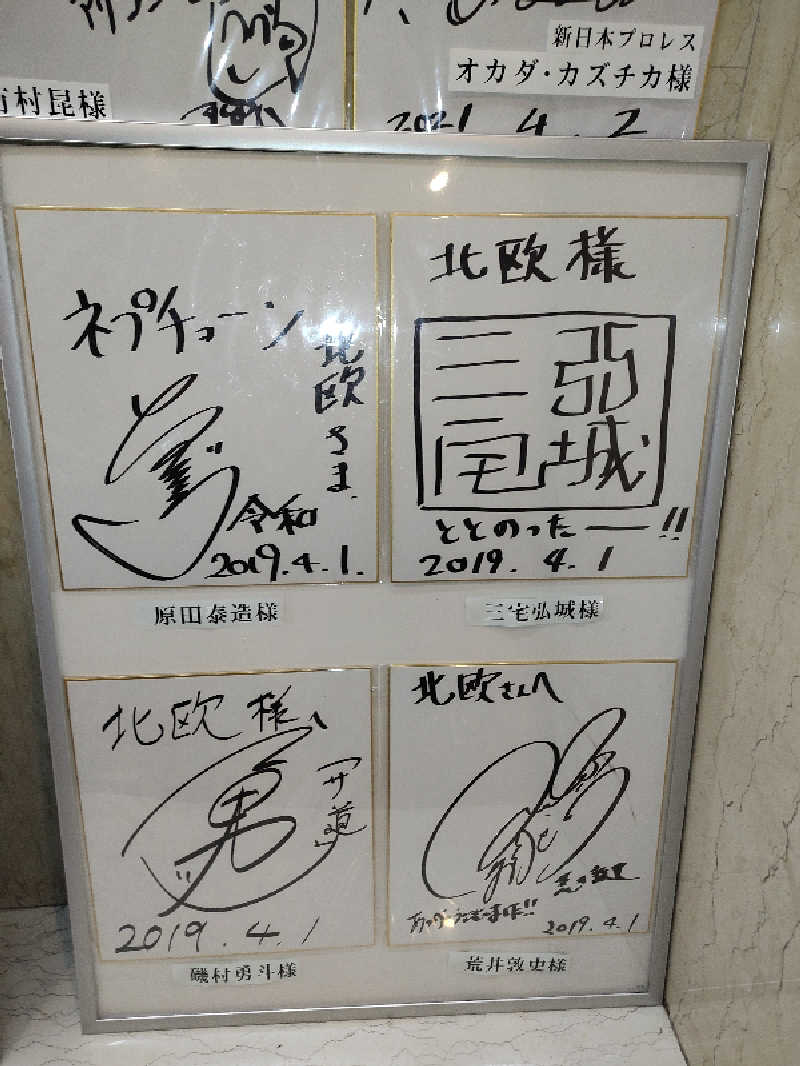 新日本プロレス
オカダ・カズチカ様
村昆様
2021. 4. 2
ネプチューン
北欧さま
令和
2019.4.1.
原田泰造様
北欧様
三宅
弘城
ととのったー!!
2019. 4. 1
三宅弘城様
北欧様へ
サ道
2019.4.1
磯村勇斗様
北欧さんへ
ありがとうございます!!
2019.4.1
荒井敦史様